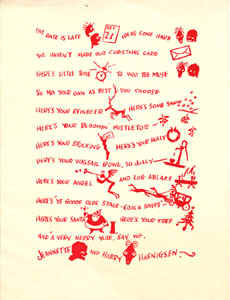 THE DATE IS LATE DEC 21 HAVE COME HAVE
WE HAVEN'T MADE OUR CHRISTMAS CARD
THERE'S LITTLE TIME TO WOO THE MUSE
SO MIX YOUR OWN AS BEST YOU CHOOSE
HERE'S YOUR REINDEER HERE'S SOME SNOW
HERE'S YOUR BLOOMIN' MISTLETOE
HERE'S YOUR STOCKING HERE'S YOUR HOLLY
HERE'S YOUR WASSAIL BOWL, SO JOLLY
HERE'S YOUR ANGEL AND LOG ABLAZE
HERE'S YE GOODE OLDE STAGE-COACH
HERE'S YOUR SANTA HERE'S YOUR TREE
AND A VERY MERRY YULE, SAY WE.
JEANNETTE AND HARRY HOENIGSEN.